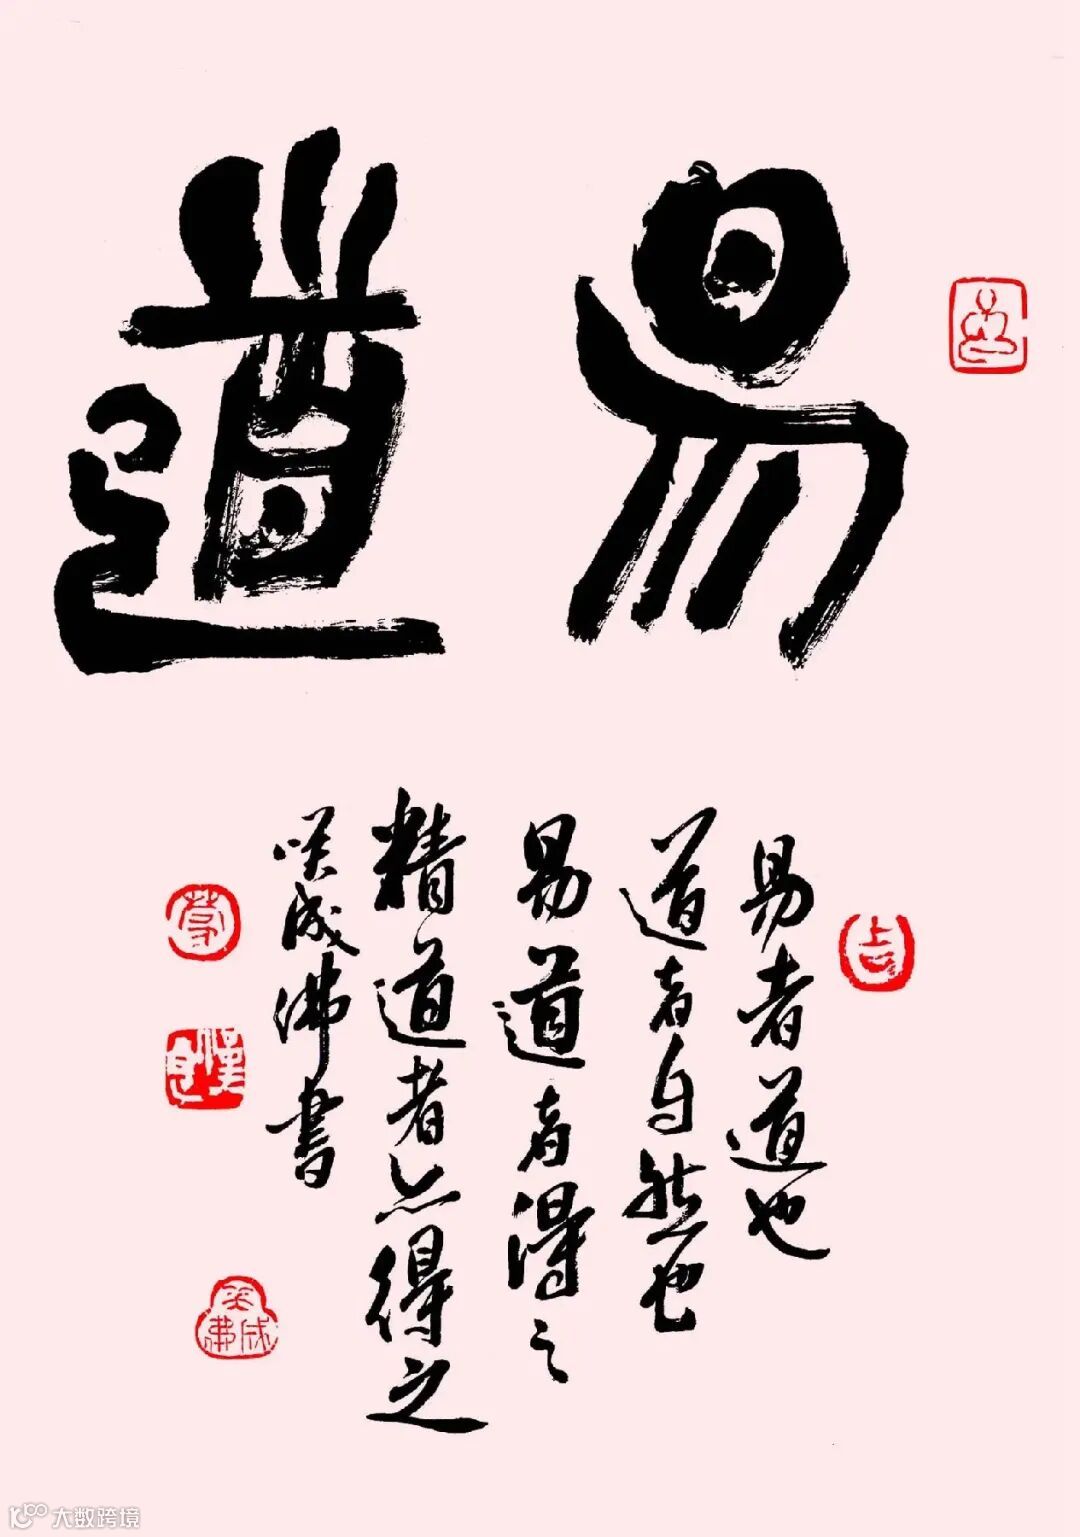 易道
易者道也
道者自然也
易道者得之
精道者亦得之
咲成佛书
大数跨境